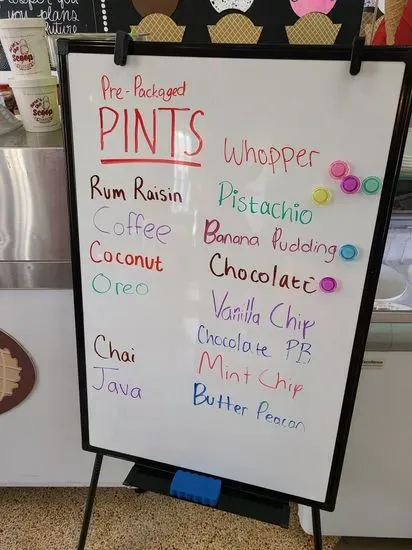 you plans
future
Scoop
Scoop
Pre-Packaged
PINTS
Rum Raisin
Coffee
Coconut
Oreo
Chai
Java
Whopper
Pistachio
Banana Pudding
Chocolate
Vanilla Chip
Chocolate PB
Mint Chip
Butter Peacan